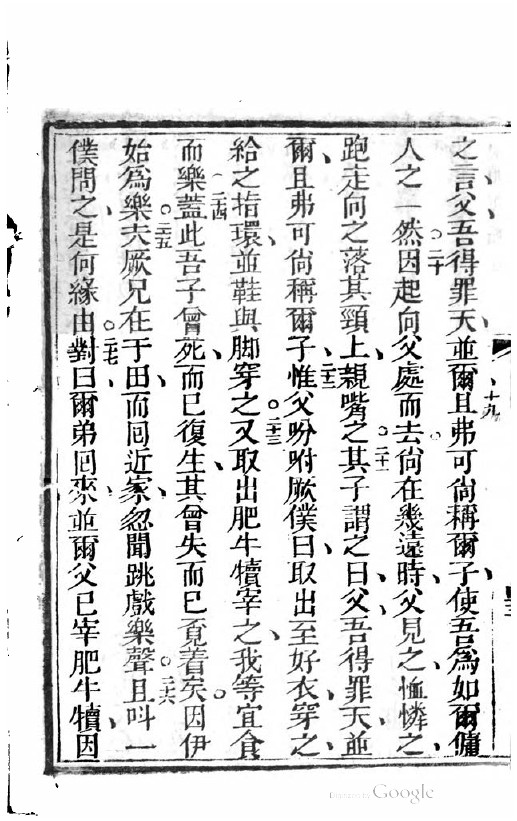 之言父吾得罪天並爾十九且弗可尙稱爾子使吾爲如爾傭
人之一然二十因起向父處而去尙在幾遠時父見之恤憐之
跑走向之落其頸上親嘴之二十一其子謂之曰父吾得罪天並
爾且弗可尙稱爾子二十二惟父吩咐厥僕曰取出至好衣穿之
給之指環並鞋與脚穿之二十三又取出肥牛犢宰之我等宜食
而樂二十四蓋此吾子曾死而已復生其曾失而已覔着矣因伊
始爲樂二十五夫厥兄在于田而囘近家忽聞跳戲樂聲二十六且呌一
僕問之是何緣由二十七對曰爾弟囘來並爾父已宰肥牛犢因
Digitized by Google